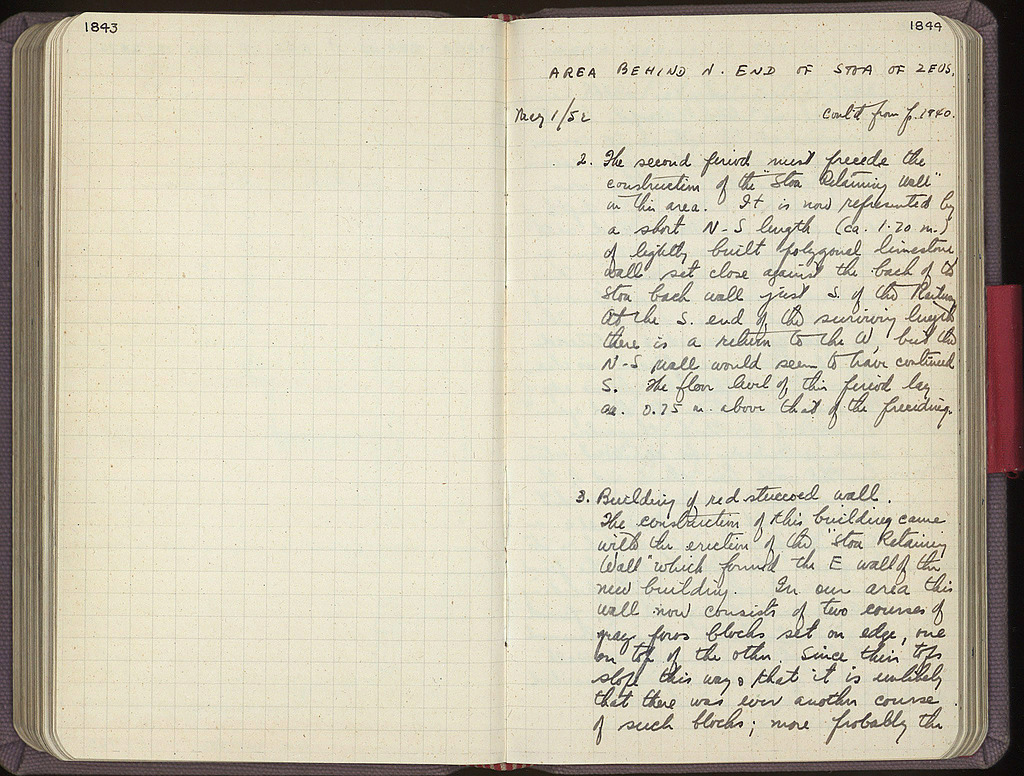 1843
1844
AREA BEHIND N. END OF STOA OF ZEUS.
May 1/52
cont'd from p. 1840.
2. The second period must precede the
construction of the "Stoa Retaining Wall"
in this area. It is now represented by
a short N-S length (ca. 1.70 m.)
of lightly built polygonal limestone
wall set close against the back of the
Stoa back wall just S. of the Railway
At the S. end of the surviving length
there is a return to the W, but the
N-S wall would seem to have continued
S. The floor level of this period lay
ca. 0.75 m. above that of the preceding.
3. Building of red stuccoed wall.
The construction of this building came
with the erection of the "Stoa Retaining
Wall" which formed the E wall of the
new building. In our area this
wall now consists of two courses of
gray poros blocks set on edge, one
on top of the other. Since their tops
slope this way, that it is unlikely
that there was ever another course
of such blocks; more probably the